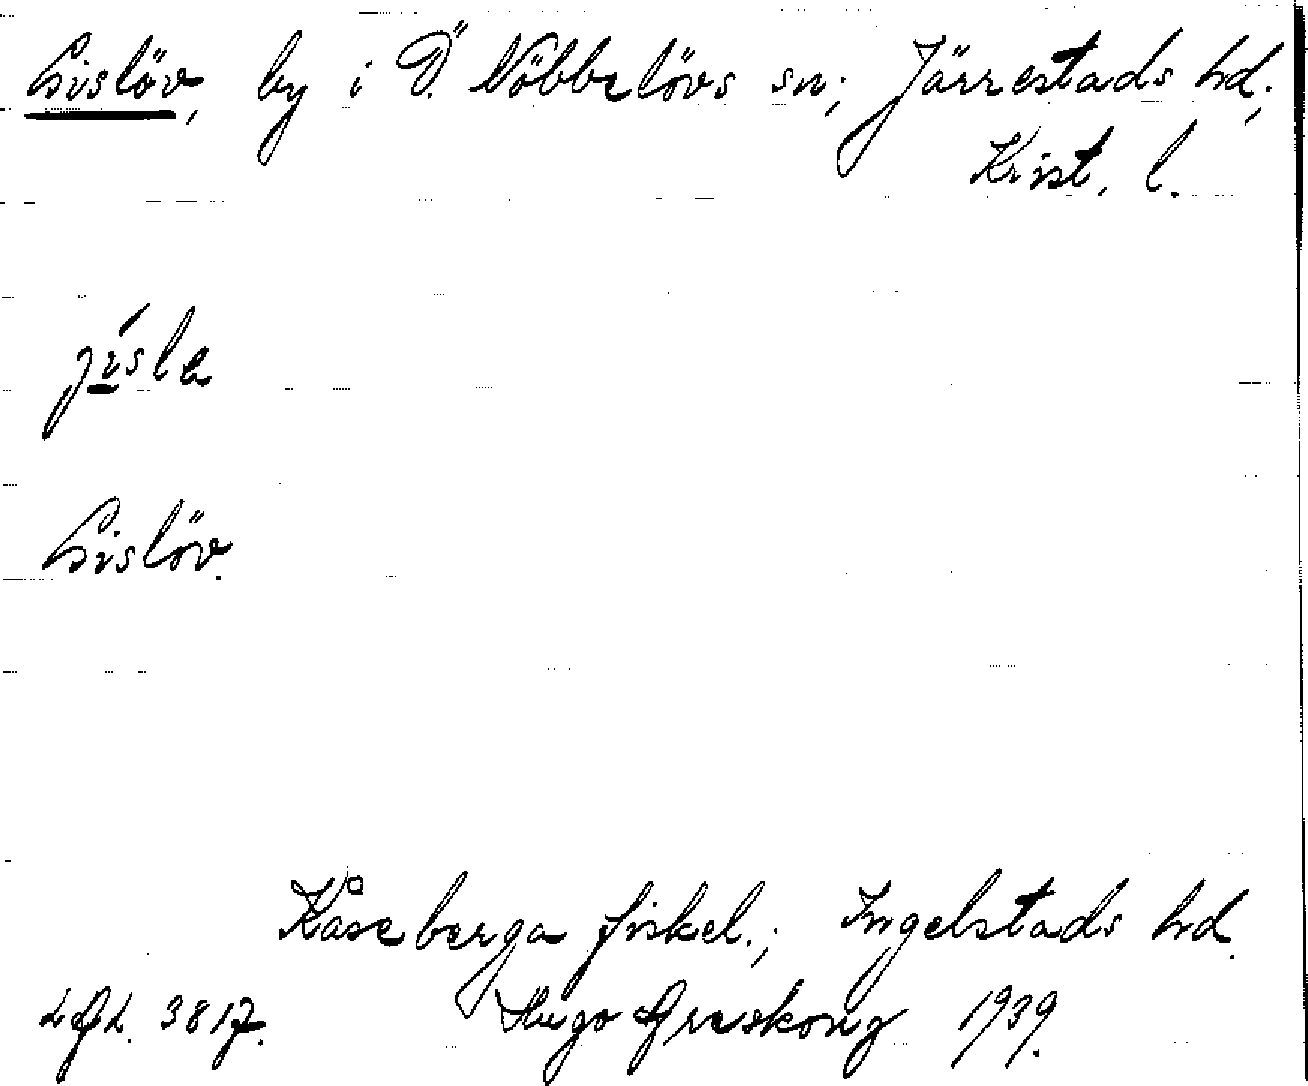 Gislöv, by i Ö. Nöbbelövs sn; Järrestads hd,
Krist. l.
jísla
Gislöv.
Kåseberga fiskel.; Ingelstads hd.
LGL. 3817. Hugo Areskoug 1939.